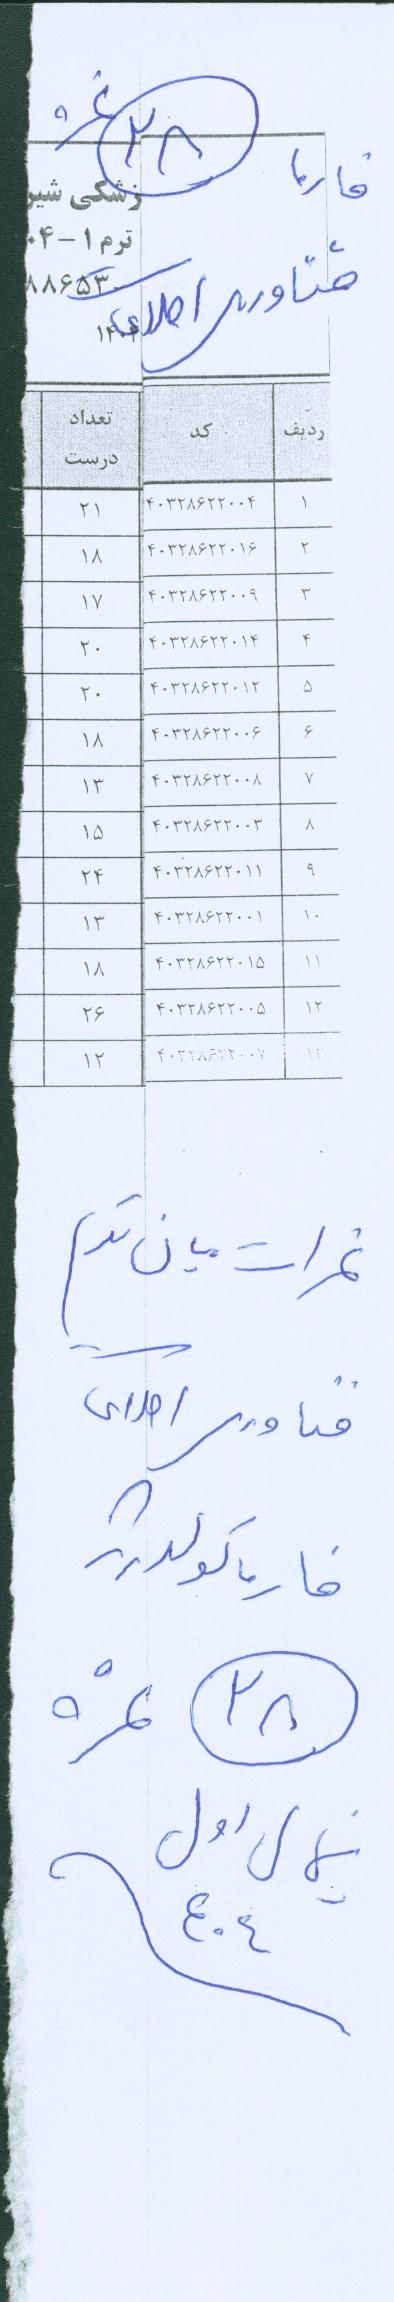 ۲۸ نمره
فارما
زشکی شیر
ترم ۱-۰۴
۸۸۶۵۳
فناوری اطلاعات
ردیف کد تعداد درست
۱ ۴۰۳۲۸۶۲۲۰۰۴ ۲۱
۲ ۴۰۳۲۸۶۲۲۰۱۶ ۱۸
۳ ۴۰۳۲۸۶۲۲۰۰۹ ۱۷
۴ ۴۰۳۲۸۶۲۲۰۱۴ ۲۰
۵ ۴۰۳۲۸۶۲۲۰۱۲ ۲۰
۶ ۴۰۳۲۸۶۲۲۰۰۶ ۱۸
۷ ۴۰۳۲۸۶۲۲۰۰۸ ۱۳
۸ ۴۰۳۲۸۶۲۲۰۰۳ ۱۵
۹ ۴۰۳۲۸۶۲۲۰۱۱ ۲۴
۱۰ ۴۰۳۲۸۶۲۲۰۰۱ ۱۳
۱۱ ۴۰۳۲۸۶۲۲۰۱۵ ۱۸
۱۲ ۴۰۳۲۸۶۲۲۰۰۵ ۲۶
۱۳ ۴۰۳۲۸۶۲۲۰۰۷ ۱۲
نمرات میان ترم
فناوری اطلاعات
فارماکولوژی
۲۸ نمره
نیمسال اول
۴۰۴